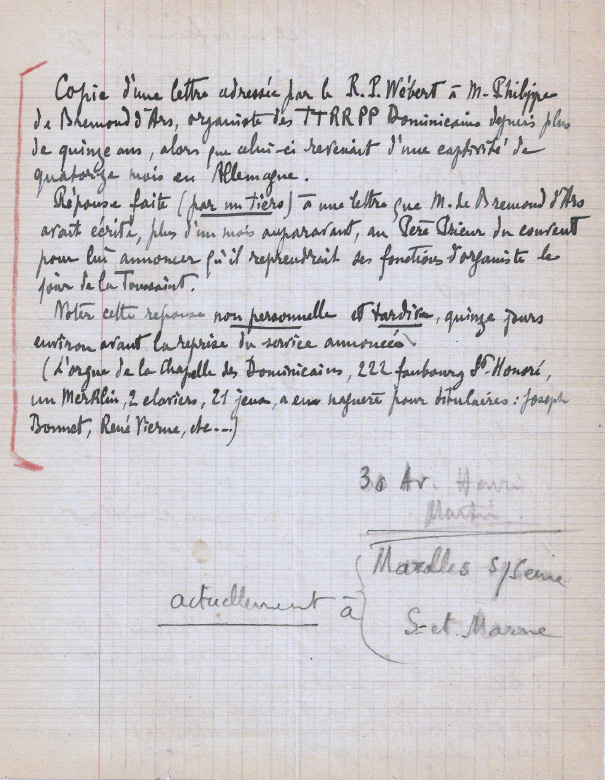 Copie d'une lettre adressée par le R.P. Wébert à M. Philippe
de Bremond d'Ars, organiste des TTRRPP Dominicains depuis plus
de quinze ans, alors que celui-ci revenait d'une captivité de
quatorze mois en Allemagne.
Réponse faite (par un tiers) à une lettre que M. de Bremond d'Ars
avait écrite, plus d'un mois auparavant, au Père Prieur du couvent
pour lui annoncer qu'il reprendrait ses fonctions d'organiste le
jour de la Toussaint.
Noter cette reponse non personnelle et tardive, quinze jours
environ avant la reprise du service annoncée
(L'orgue de la Chapelle des Dominicains, 222 faubourg St-Honoré,
un Merklin, 2 claviers, 21 jeux, a eu naguère pour titulaires : Joseph
Bonnet, René Vierne, etc...)
30 Av. Henri
Martin
Marolles s/Seine
actuellement à
S-et-Marne